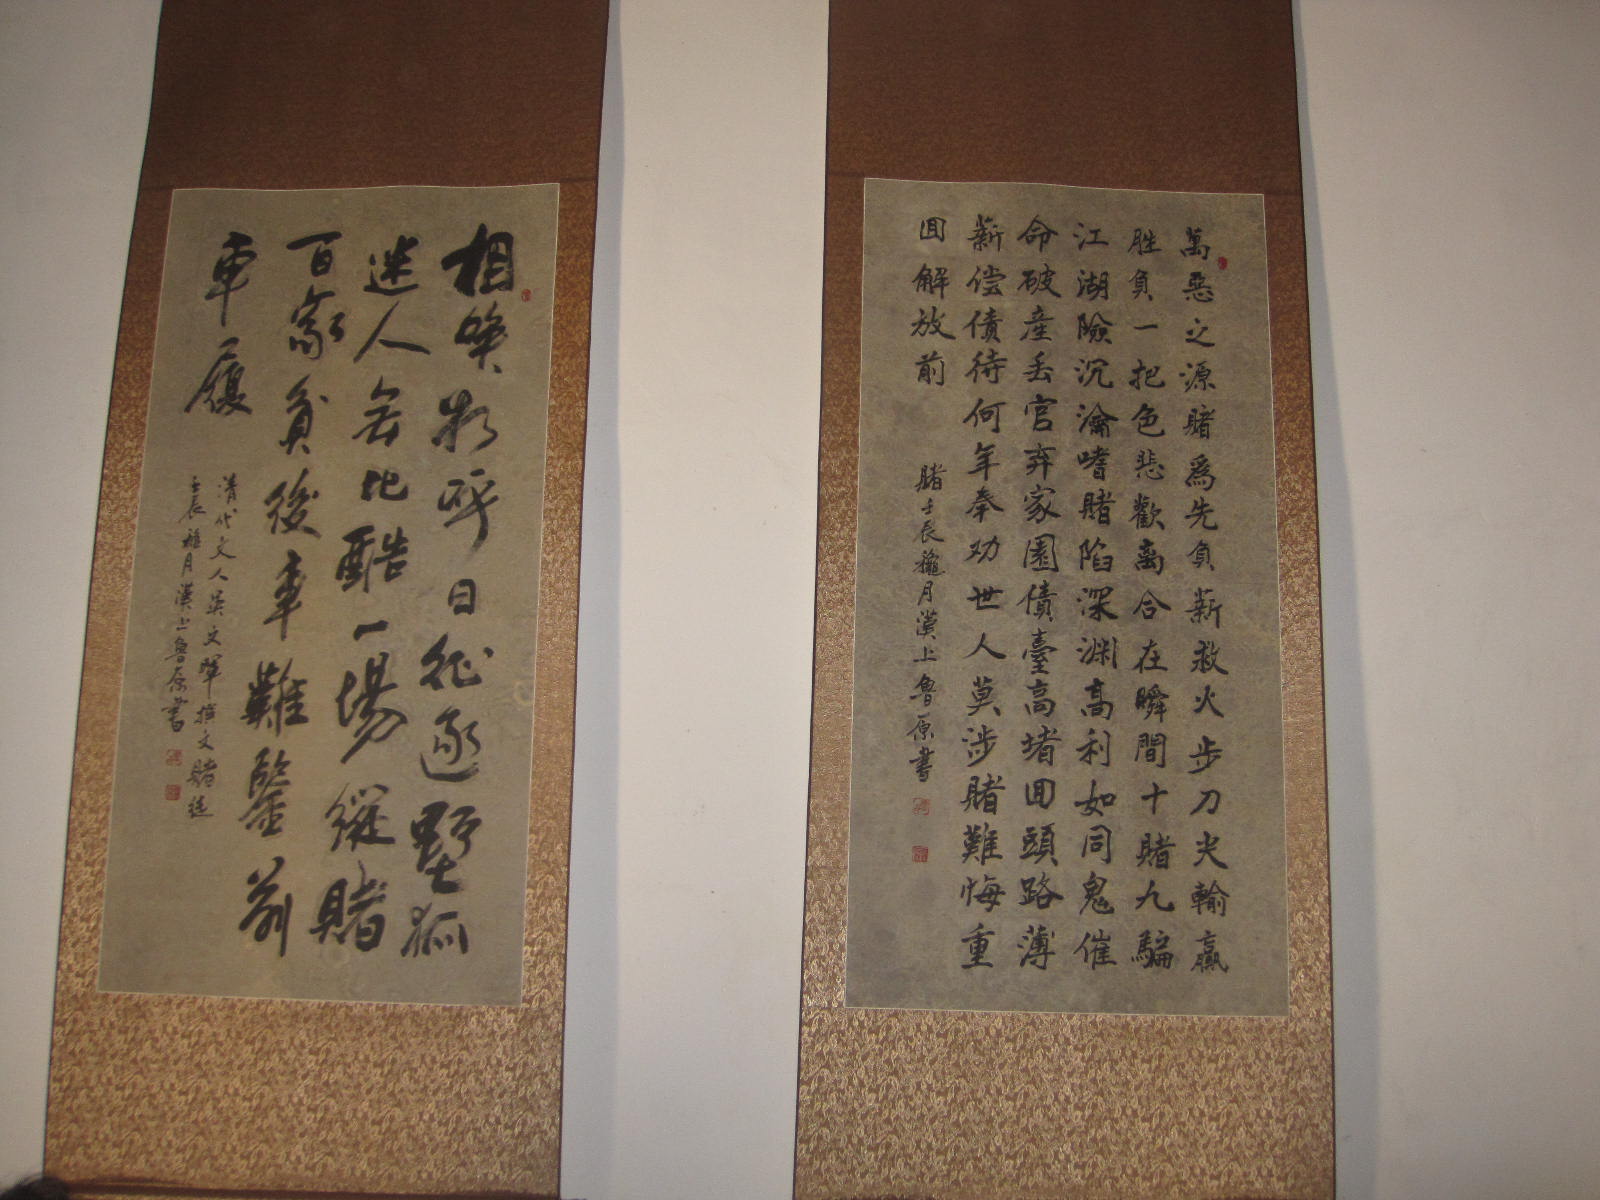 萬惡之源賭爲先負薪救火步刀尖輸贏
胜負一把色悲歡离合在瞬間十賭九騙
江湖險沉瀹嗜賭陷深渊高利如同鬼催
命破産丢官弃家園債臺高堵回頭路薄
薪偿債待何年奉劝世人莫涉賭難悔重
回解放前
賭壬辰龝月漢上魯原書
相喚相呼日征逐野狐
迷人無比酷一場縱賭
百家貧後車難鑒前
車履
清代文人吴文暉撰文賭徒
壬辰秋月漢上魯原書